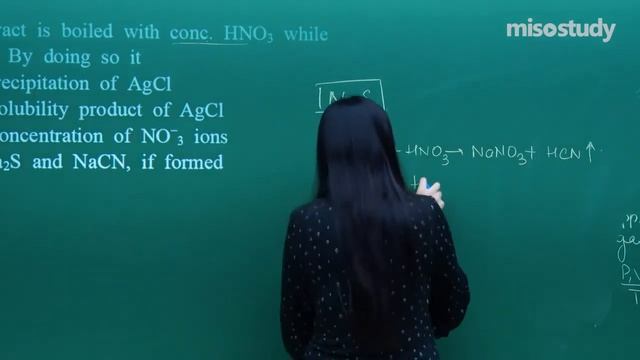 misostudy
ract is boiled with conc. HNO₃ while
By doing so it
recipitation of AgCl
olubility product of AgCl
oncentration of NO⁻₃ ions
a₂S and NaCN, if formed
HNO₃ → NaNO₃ + HCN ↑